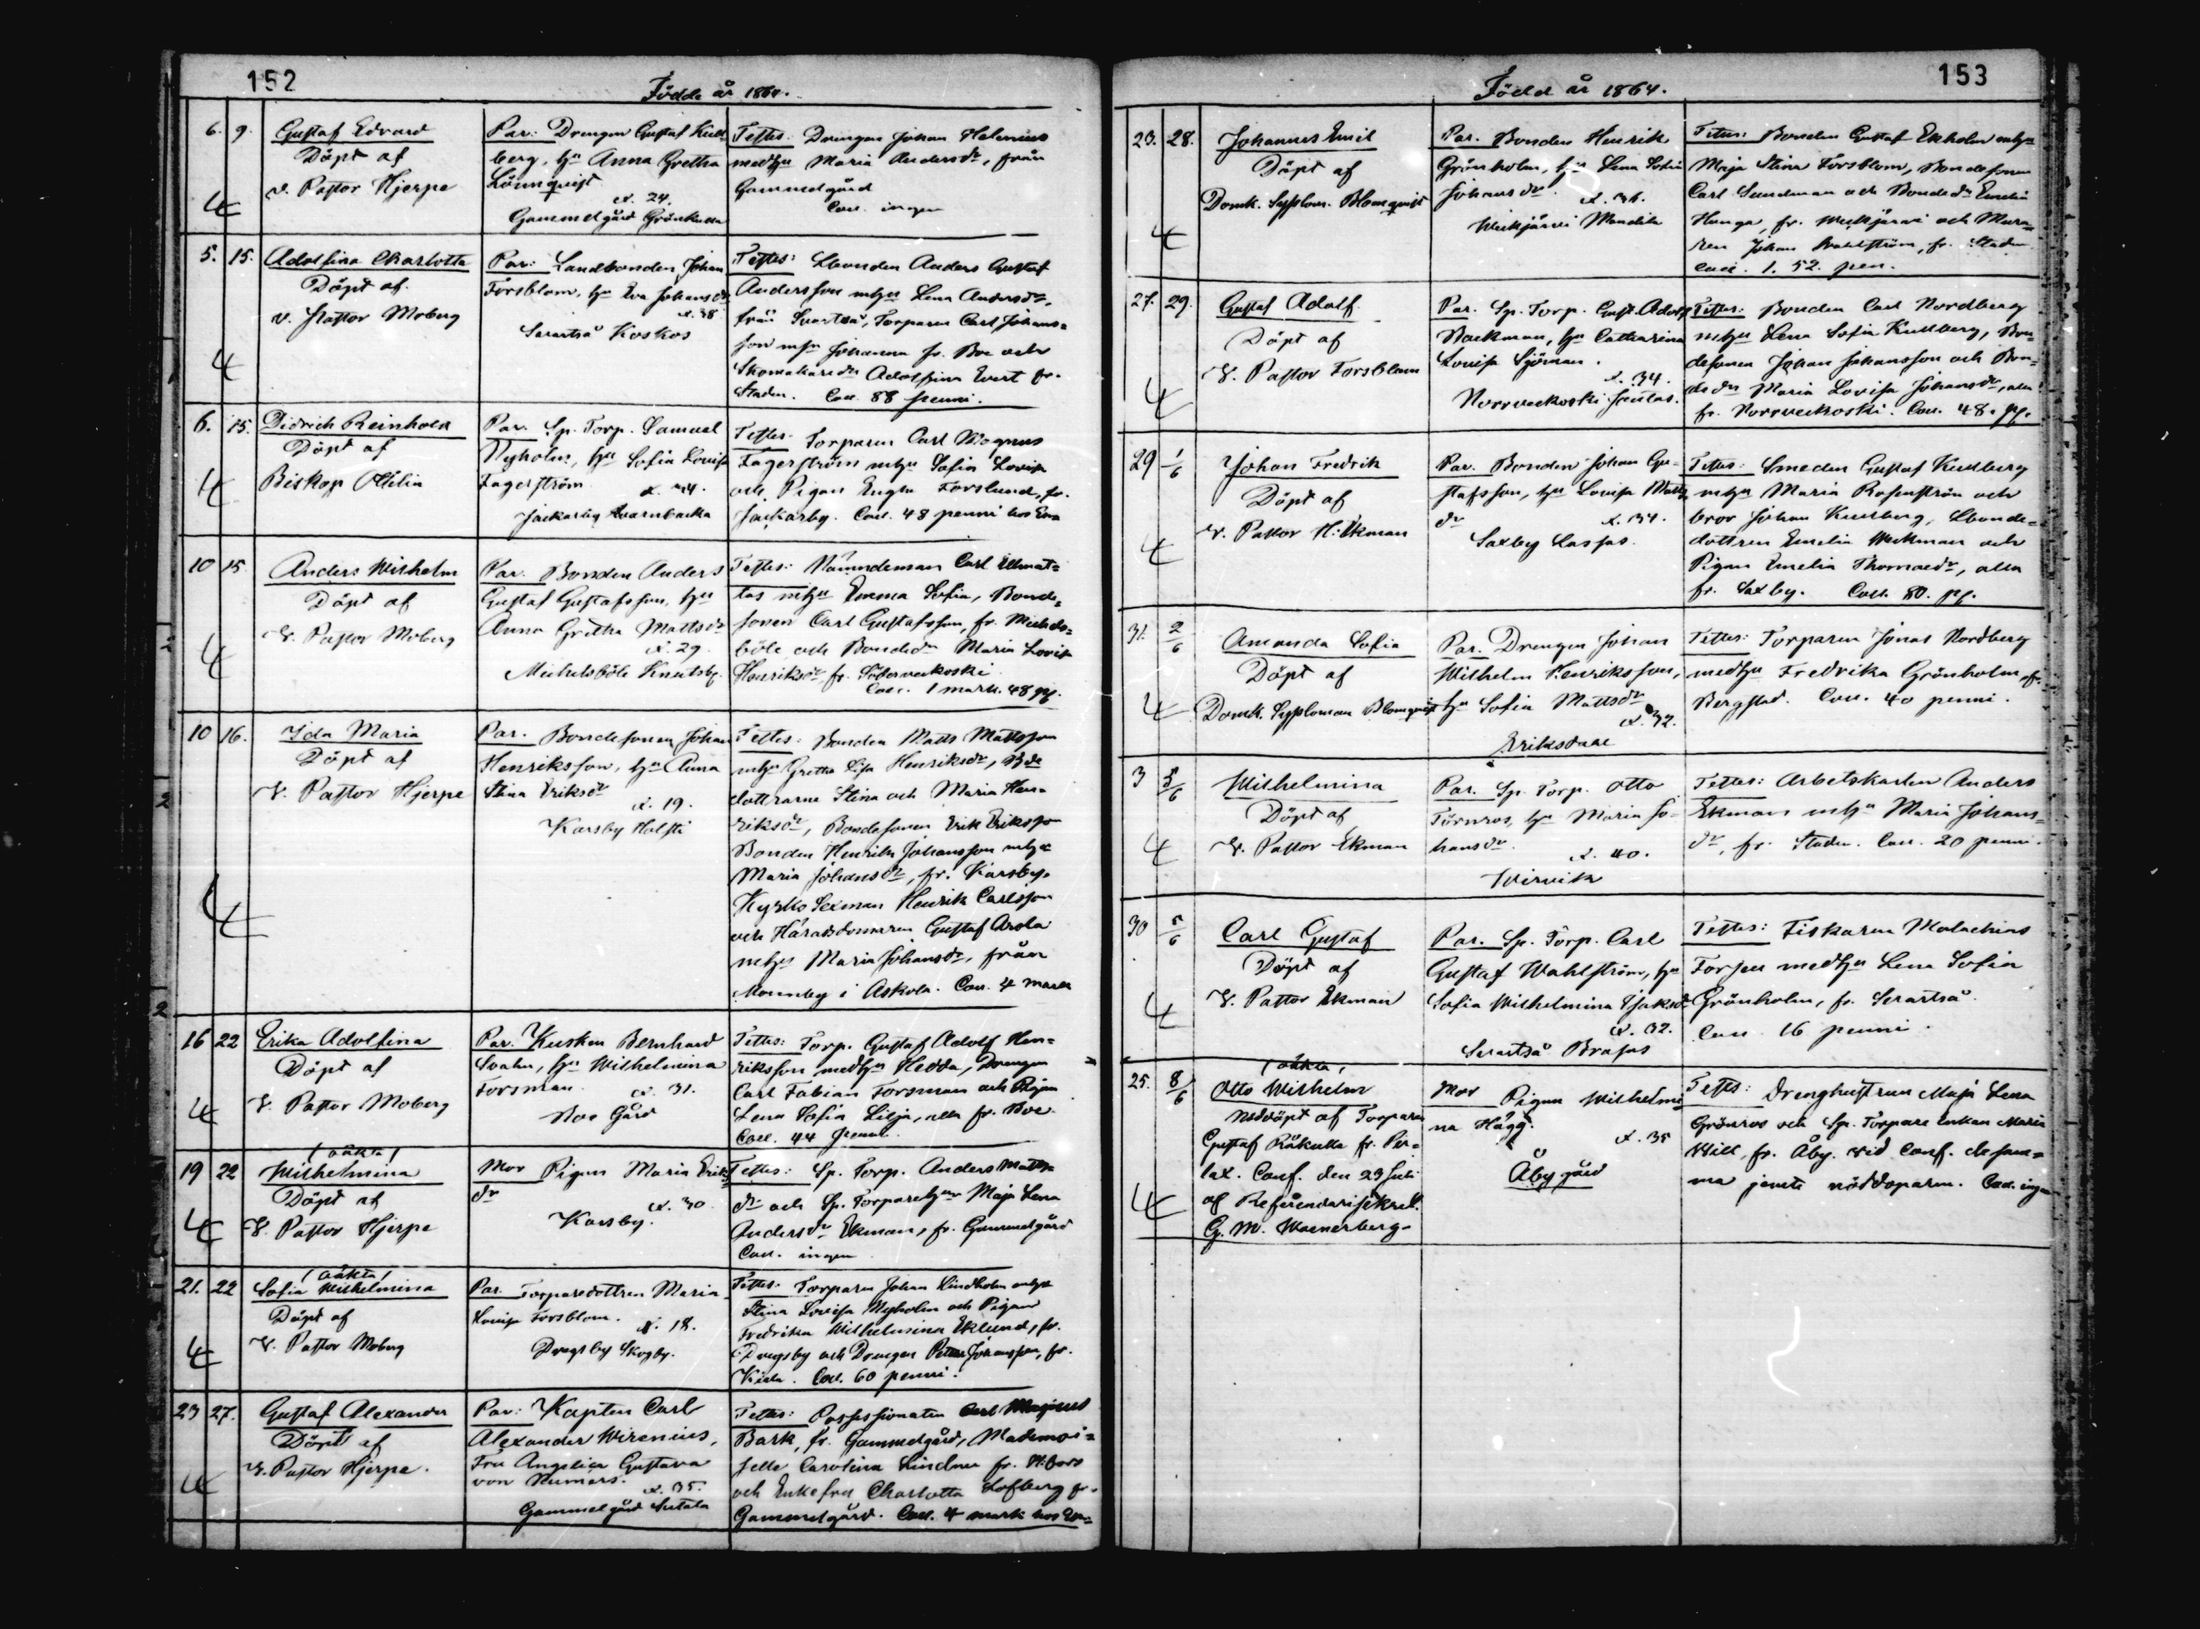 152
Födde år 1864.
6. 9. Gustaf Edvard
Döpt af
v. Pastor Hjerpe
Par: Drengen Gustaf Kull
berg, hu Anna Gretha
Lönnquist
æ. 24.
Gammelgård Grönkulla
Testes: Drengen Johan Helenius
medhu Maria Andersdr, från
Gammelgård
Coll. ingen
5. 15. Adolfina Charlotta
Döpt af
v. Pastor Moberg
Par: Landbonden Johan
Forsblom, hu Eva Johansdr
æ. 38
Svartså Koskos
Testes: Lbonden Anders Gustaf
Andersson mhu Lena Andersdr,
från Svartså, Torparen Carl Johans=
son mhu Johanna fr. Boe och
Skomakaredr Adolfina Evert fr.
Staden. Coll. 88 penni.
6. 15. Didrich Reinhold
Döpt af
Biskop Ottilin
Par. Sp. Torp. Samuel
Nyholm, hu Sofia Lovisa
Fagerström
æ. 44.
Jackarby Kvarnbacka
Testes. Torparen Carl Magnus
Fagerström mhu Sofia Lovisa
och Pigan Engla Forslund, fr.
Jackarby. Coll. 48 penni hos
10 15 Anders Wilhelm
Döpt af
V. Pastor Moberg
Par. Bonden Anders
Gustaf Gustafsson, hu
Anna Gretha Mattsdr
æ. 29.
Michelsböle Knutsby.
Testes: Nämndeman Carl
mhu Emma Sofia, Bonde=
sonen Carl Gustafsson, fr. Michels=
böle och Bondedr Maria Lovisa
Henriksdr, fr. Södervekoski
Coll. 1 mark 48 p.
10 16. Ida Maria
Döpt af
V. Pastor Hjerpe
Par. Bondesonen Johan
Henriksson, hu Anna
Stina Eriksdr
æ. 19.
Karsby Holsti
Testes: Bonden Matts Mattsson
mhu Gretha Lisa Henriksdr, Bde
dottrarne Stina och Maria Hen=
riksdr, Bondesonen Erik Eriksson
Bonden Henrik Johansson mhu
Maria Johansdr, fr. Karsby.
Kyrko Sexman Henrik Carlsson
och Häradsdomaren Gustaf Arola
mhu Maria Johansdr, från
Monnby i Askola. Coll. 4 mark
16 22 Erika Adolfina
Döpt af
V. Pastor Moberg
Par. Kusken Bernhard
Svahn, hu Wilhelmina
Forsman
æ. 31.
Boe Gård
Testes: Torp. Gustaf Adolf Hen=
riksson medhu Hedda, Drengen
Carl Fabian Forsman och Pigan
Lena Sofia Lilja, alla fr. Boe
Coll. 44 penni.
19 22 (oäkta)
Wilhelmina
Döpt af
V. Pastor Hjerpe
Mor Pigan Maria Eriks
dr
æ. 30
Karsby.
Testes: Sp. Torp. Anders Matts
dr och Sp. Torparehu Maja Lena
Andersdr Ekman, fr. Gammelgård
Coll. ingen
21. 22 (oäkta)
Sofia Wilhelmina
Döpt af
V. Pastor Moberg
Par. Torparedottren Maria
Lovisa Forsblom.
æ. 18.
Drägsby Skogby.
Testes. Torparen Johan Lindholm mhu
Stina Lovisa Nyholm och Pigan
Fredrika Wilhelmina Eklund, fr.
Drägsby och Drengen Petter Johansson, fr.
Kiala. Coll. 60 penni.
23 27. Gustaf Alexander
Döpt af
V. Pastor Hjerpe.
Par: Kapten Carl
Alexander Wirenius,
Fru Angelica Gustava
von Numers.
æ. 35.
Gammelgård
Testes: Possessionaten Carl Magnus
Bark, fr. Gammelgård, Mademoi=
selle Carolina Lindner fr.
och Enkefru Charlotta Lofberg fr.
Gammelgård. Coll. 4 mark hos
153
Födde år 1864.
23. 28. Johannes Emil
Döpt af
Domk. Sysslom. Blomquist
Par. Bonden Henrik
Grönholm, hu Lena Sofia
Johansdr
æ. 36.
Weckjärvi Mandila
Testes: Bonden Gustaf Ekholm mhu
Maja Stina Forsblom, Bondesonen
Carl Sundman och Bondedr Emelie
Hunga, fr. Weckjärvi och Mura=
ren Johan Wahlström, fr. Staden
Coll. 1. 52. pen.
27. 29. Gustaf Adolf
Döpt af
V. Pastor Forsblom
Par. Sp. Torp. Gust. Adolf
Backman, hu Catharina
Lovisa Sjöman.
æ. 34.
Norrveckoski
Testes: Bonden Carl Nordberg
mhu Lena Sofia Kullberg, Bon=
desonen Johan Johansson och Bon=
dedr Maria Lovisa Johansdr, alla
fr. Norrveckoski. Coll. 48. p.
29 1/6 Johan Fredrik
Döpt af
V. Pastor H: Ekman
Par. Bonden Johan Gu=
stafsson, hu Lovisa Matts
dr
æ. 34.
Saxby Lassas.
Testes: Smeden Gustaf Kullberg
mhu Maria Rosenström och
bror Johan Kullberg, Lbonde=
dottren Emelia Weckman och
Pigan Emelia Thomasdr, alla
fr. Saxby. Coll. 80. p.
31. 2/6 Amanda Sofia
Döpt af
Domk. Sysloman Blomquist
Par. Drengen Johan
Wilhelm Henriksson,
hu Sofia Mattsdr
æ. 32.
Eriksdal
Testes: Torparen Jonas Nordberg
medhu Fredrika Grönholm, fr.
Bergstad. Coll. 40 penni.
3 5/6 Wilhelmina
Döpt af
V. Pastor Ekman
Par. Sp. Torp. Otto
Törnros, hu Maria Jo=
hansdr.
æ. 40.
Wirvik
Testes: Arbetskarlen Anders
Ekman mhu Maria Johans=
dr, fr. Staden. Coll. 20 penni.
30 5/6 Carl Gustaf
Döpt af
V. Pastor Ekman
Par. Sp. Torp. Carl
Gustaf Wahlström, hu
Sofia Wilhelmina
æ. 32.
Svartså Brasas
Testes: Fiskaren Malachias
Forsen medhu Lena Sofia
Grönholm, fr. Svartså.
Coll. 16 penni.
25. 8/6 (oäkta)
Otto Wilhelm
Nöddöpt af Torparen
Gustaf Räkulla fr. Per=
lax. Conf. den 29 Juli
af Referendariisekret.
G. M. Waenerberg
Mor Pigan Wilhelmi
na Hägg.
æ. 35
Åby gård
Testes: Drenghustrun Maja Lena
Grönros och Sp. Torpare Enkan Maria
Will, fr. Åby. Vid Conf. desam=
ma jemte nöddoparen. Coll. ingen